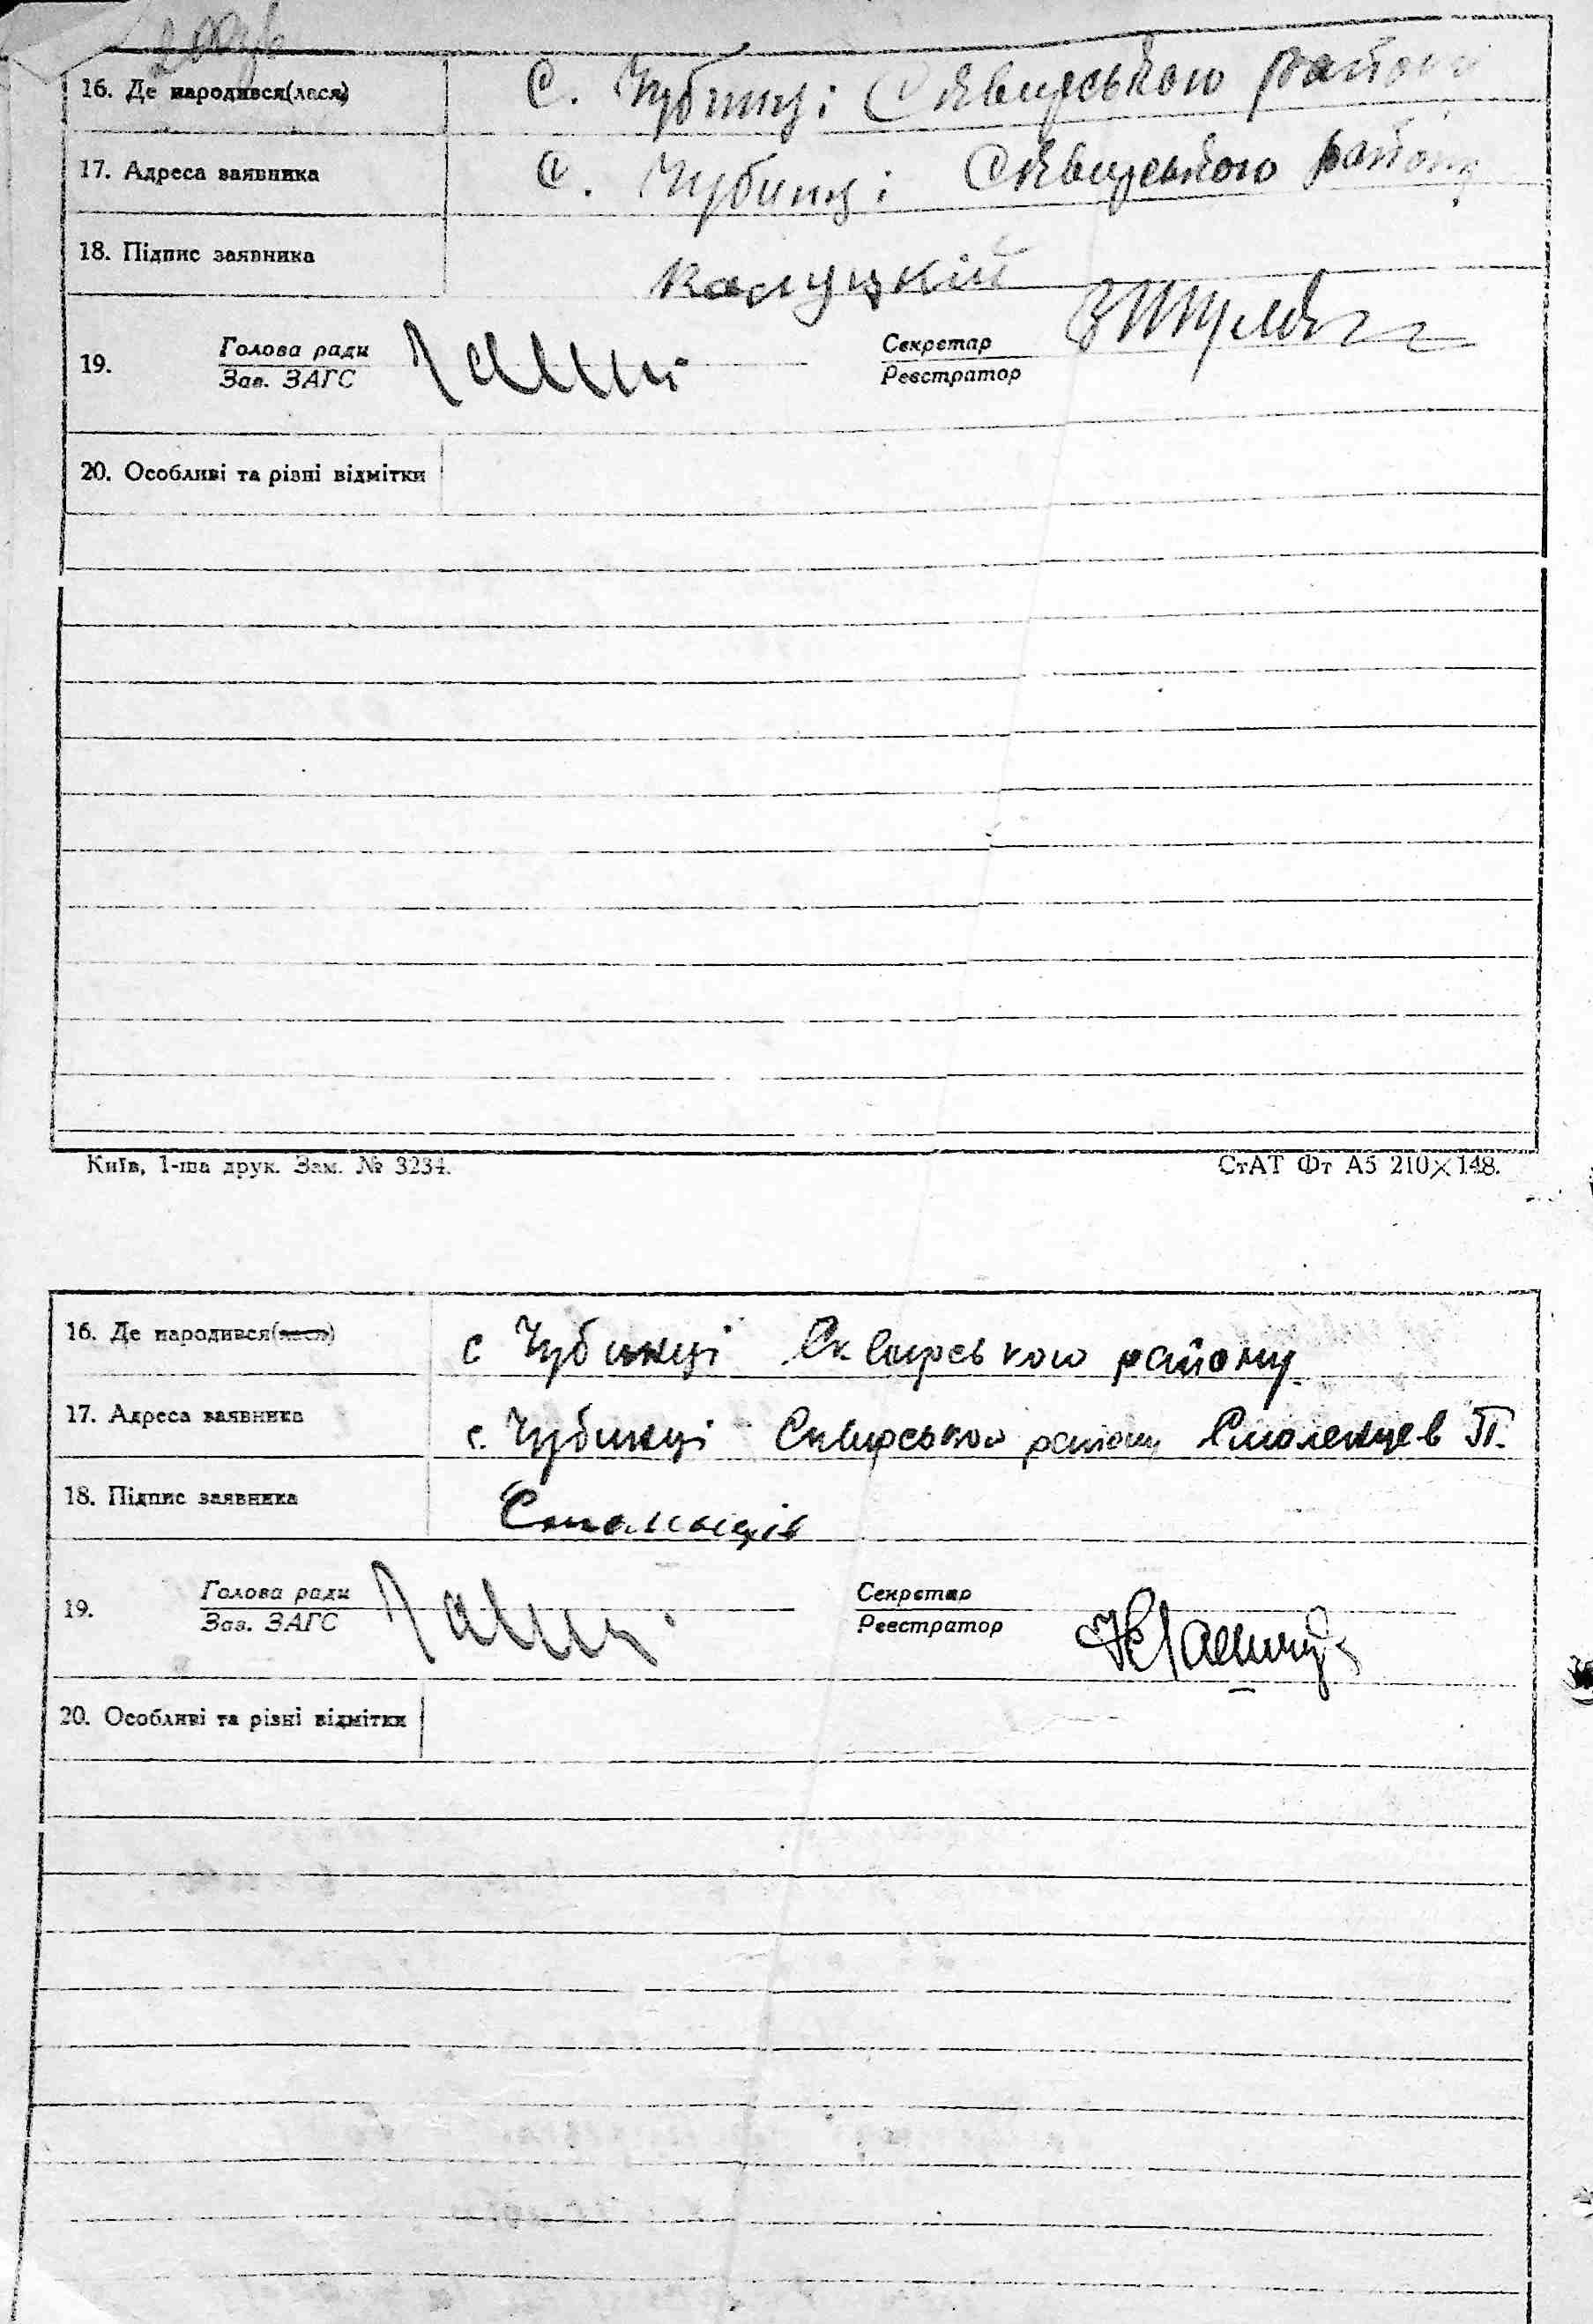 16. Де народився(лася) с. Чубинці Сквирського району
17. Адреса заявника с. Чубинці Сквирського району
18. Підпис заявника
19. Голова ради Секретар
Зав. ЗАГС Реєстратор
20. Особливі та різні відмітки
Київ, 1-ша друк. Зам. № 3234. СтАТ Фт А5 210×148.
16. Де народився(лася) с Чубинці Сквирського району
17. Адреса заявника с. Чубинці Сквирського району П.
18. Підпис заявника
19. Голова ради Секретар
Зав. ЗАГС Реєстратор
20. Особливі та різні відмітки